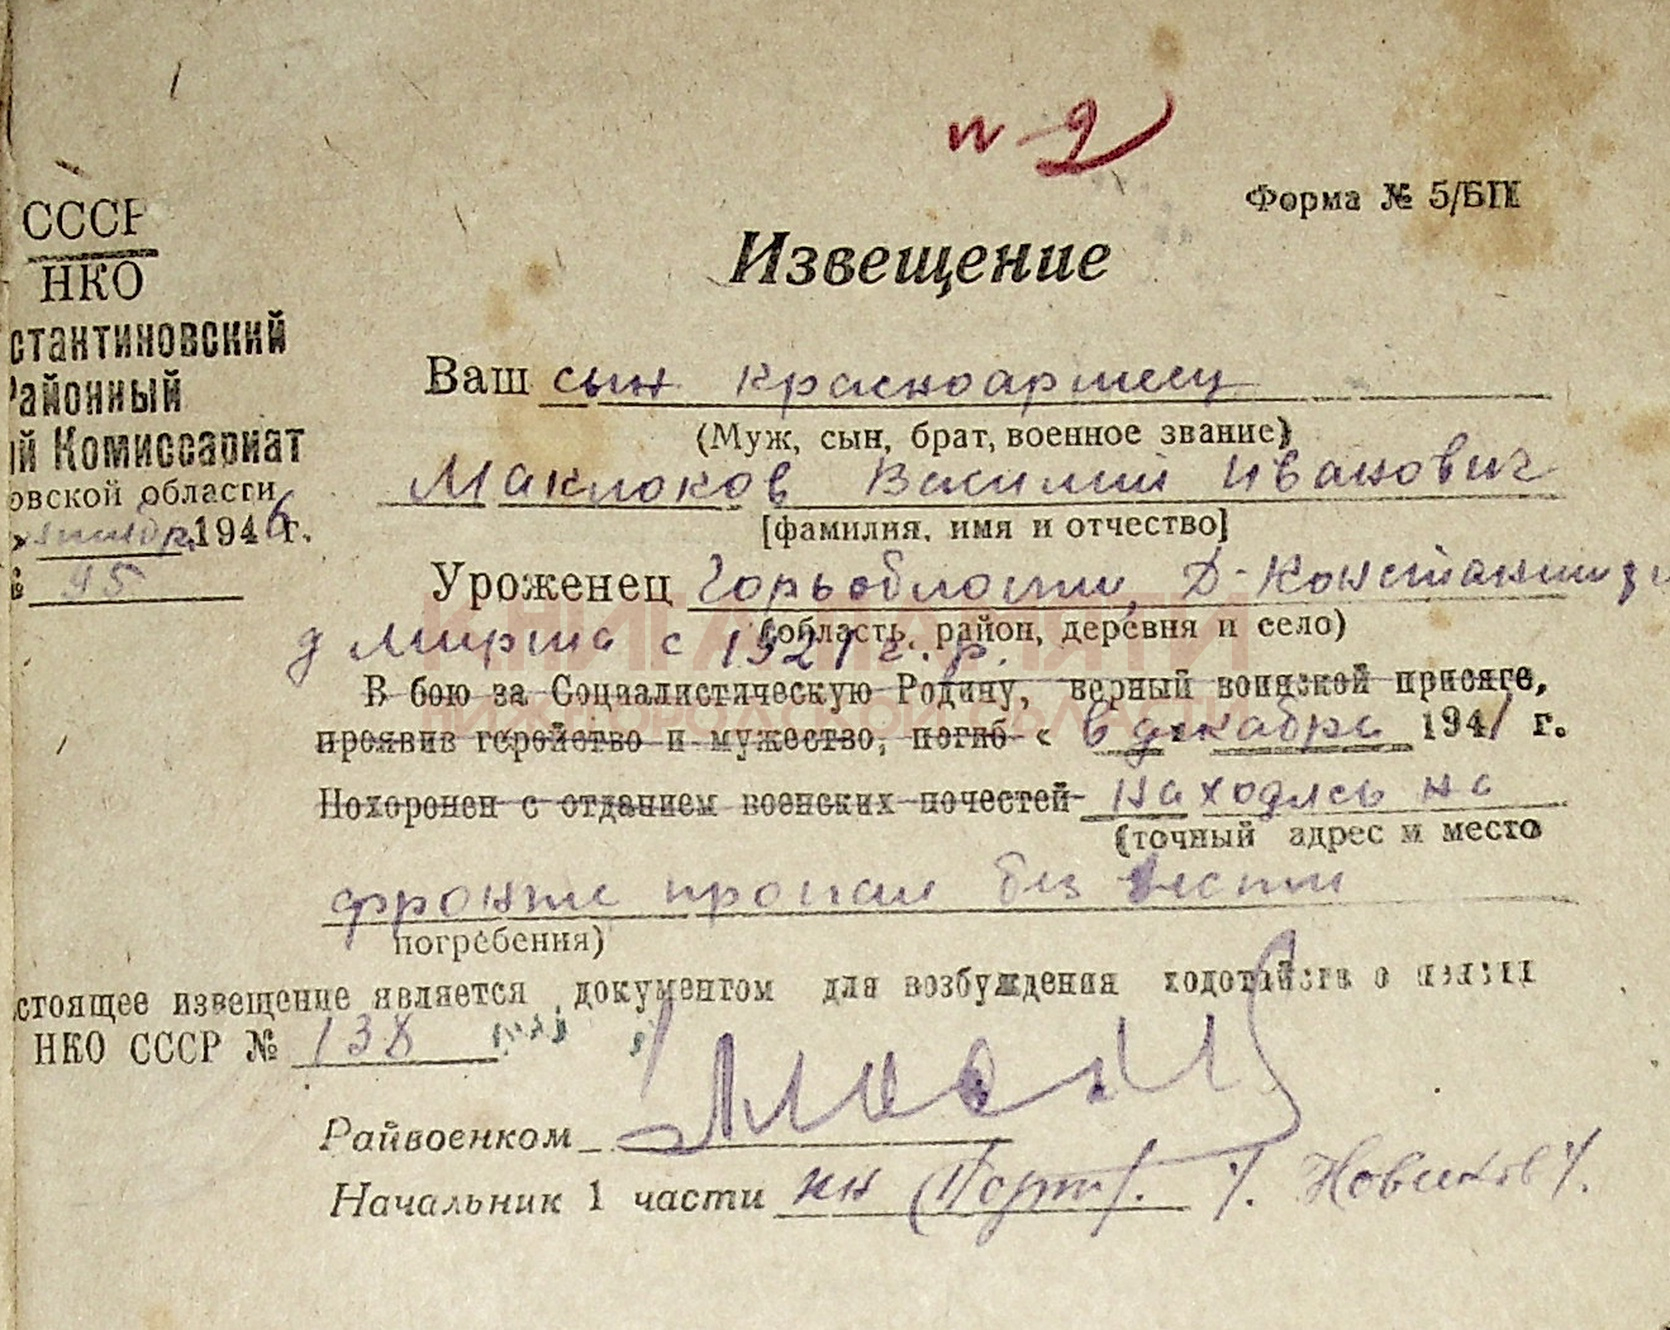 п 2
Форма № 5/БП
СССР
НКО
Извещение
стантиновский
Районный
ый Комиссариат
овской области
1946 г.
№ 45
Ваш сын красноармеец
(Муж, сын, брат, военное звание)
Маклюков Василий Иванович
[фамилия, имя и отчество]
Уроженец Горьобласти, Д-Констант
(область, район, деревня и село)
с 1921 г. р.
КНИГА ПАМЯТИ
НИЖЕГОРОДСКОЙ ОБЛАСТИ
В бою за Социалистическую Родину, верный воинской присяге,
проявив геройство и мужество, погиб « в декабре 1941 г.
Похоронен с отданием военских почестей находясь на
(точный адрес и место
фронте пропал без вести
погребения)
стоящее извещение является документом для возбуждения ходотайства о пенсии
НКО СССР № 138
Райвоенком
Начальник 1 части Новиков/.